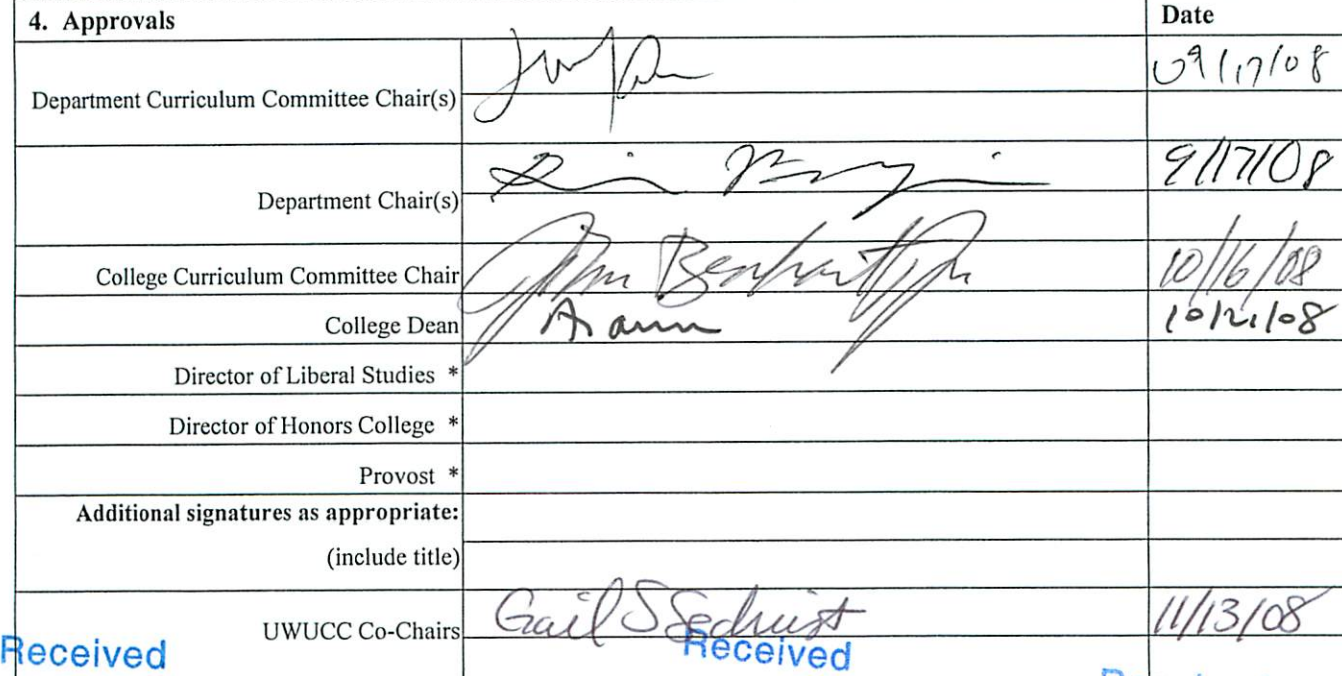 4. Approvals Date
Department Curriculum Committee Chair(s) 09/17/08
Department Chair(s) 9/17/08
College Curriculum Committee Chair John Benhart Jr 10/16/08
College Dean 10/21/08
Director of Liberal Studies *
Director of Honors College *
Provost *
Additional signatures as appropriate:
(include title)
UWUCC Co-Chairs Gail S Sechrist 11/13/08
Received Received